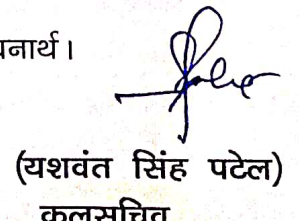 नार्थ।
(यशवंत सिंह पटेल)
कुलसचिव